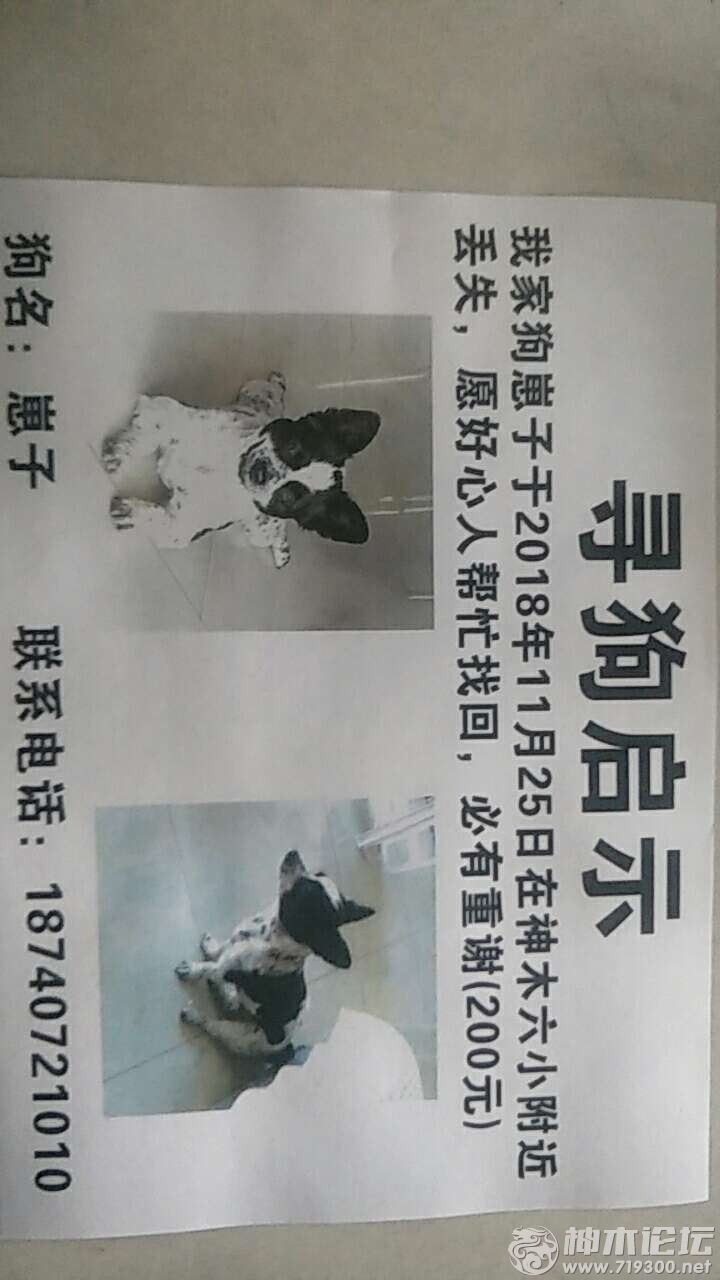 寻狗启示
我家狗崽子于2018年11月25日在神木六小附近
丢失，愿好心人帮忙找回，必有重谢(200元)
狗名：崽子 联系电话：18740721010
神木论坛
www.719300.net